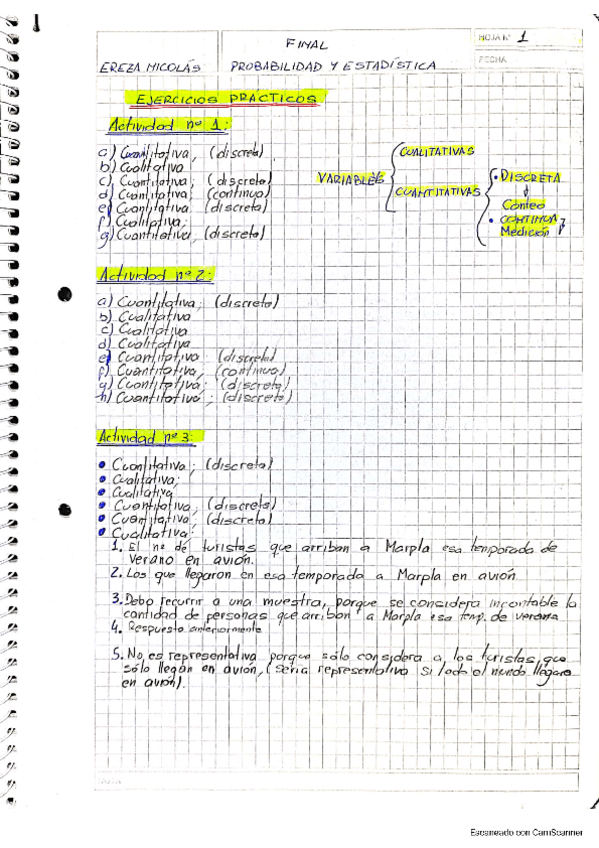 FINAL
HOJA Nº 1
EREZA NICOLÁS
PROBABILIDAD Y ESTADÍSTICA
FECHA
EJERCICIOS PRÁCTICOS
Actividad nº 1:
a) Cuantitativa, (discreta)
b) Cualitativa
c) Cuantitativa; (discreta)
d) Cuantitativa; (continua)
e) Cuantitativa; (discreta)
f) Cualitativa
g) Cuantitativa, (discreta)
VARIABLES
CUALITATIVAS
CUANTITATIVAS
• DISCRETA
↓
Conteo
• CONTINUA
Medición
Actividad nº 2:
a) Cuantitativa; (discreta)
b) Cualitativa
c) Cualitativa
d) Cualitativa
e) Cuantitativa (discreta)
f) Cuantitativa, (continua)
g) Cuantitativa; (discreta)
h) Cuantitativa; (discreta)
Actividad nº 3:
• Cuantitativa; (discreta)
• Cualitativa;
• Cualitativa
• Cuantitativa; (discreta)
• Cuantitativa; (discreta)
• Cualitativa;
1. El nº de turistas que arriban a Marpla esa temporada de
verano en avión.
2. Los que llegaron en esa temporada a Marpla en avión.
3. Debo recurrir a una muestra, porque se considera incontable la
cantidad de personas que arriban a Marpla esa temp. de verano
4. Respuesta anteriormente
5. No es representativa porque sólo considera a los turistas que
sólo llegan en avión, (sería representativa si todo el mundo llegara
en avión).
Escaneado con CamScanner